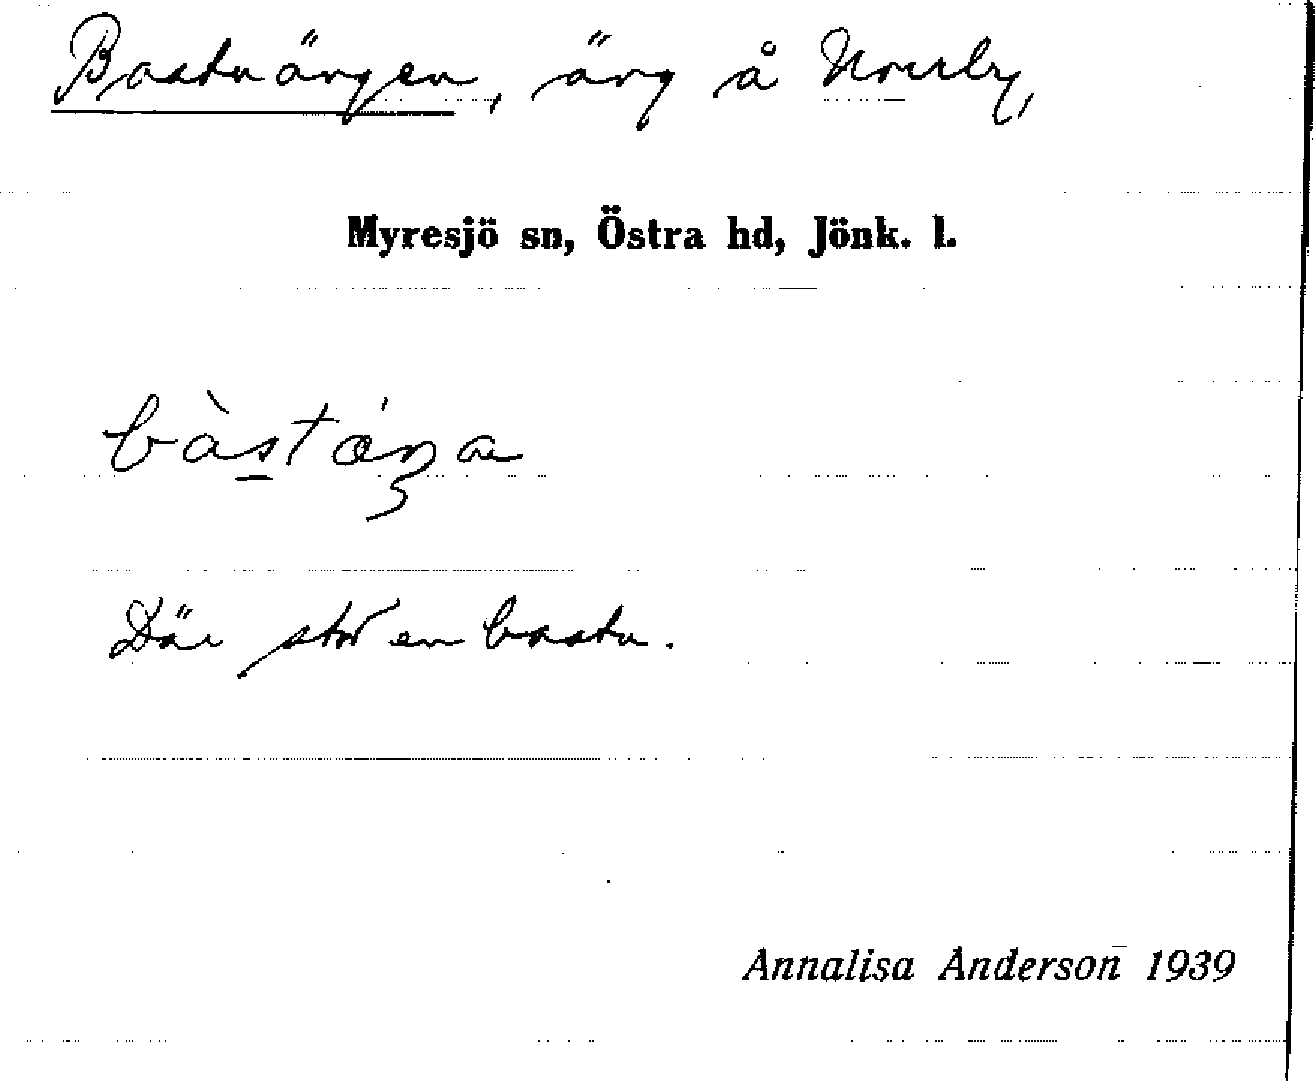 Bastuängen, äng å Norrby,
Myresjö sn, Östra hd, Jönk. l.
Där stod en bastu.
Annalisa Anderson 1939